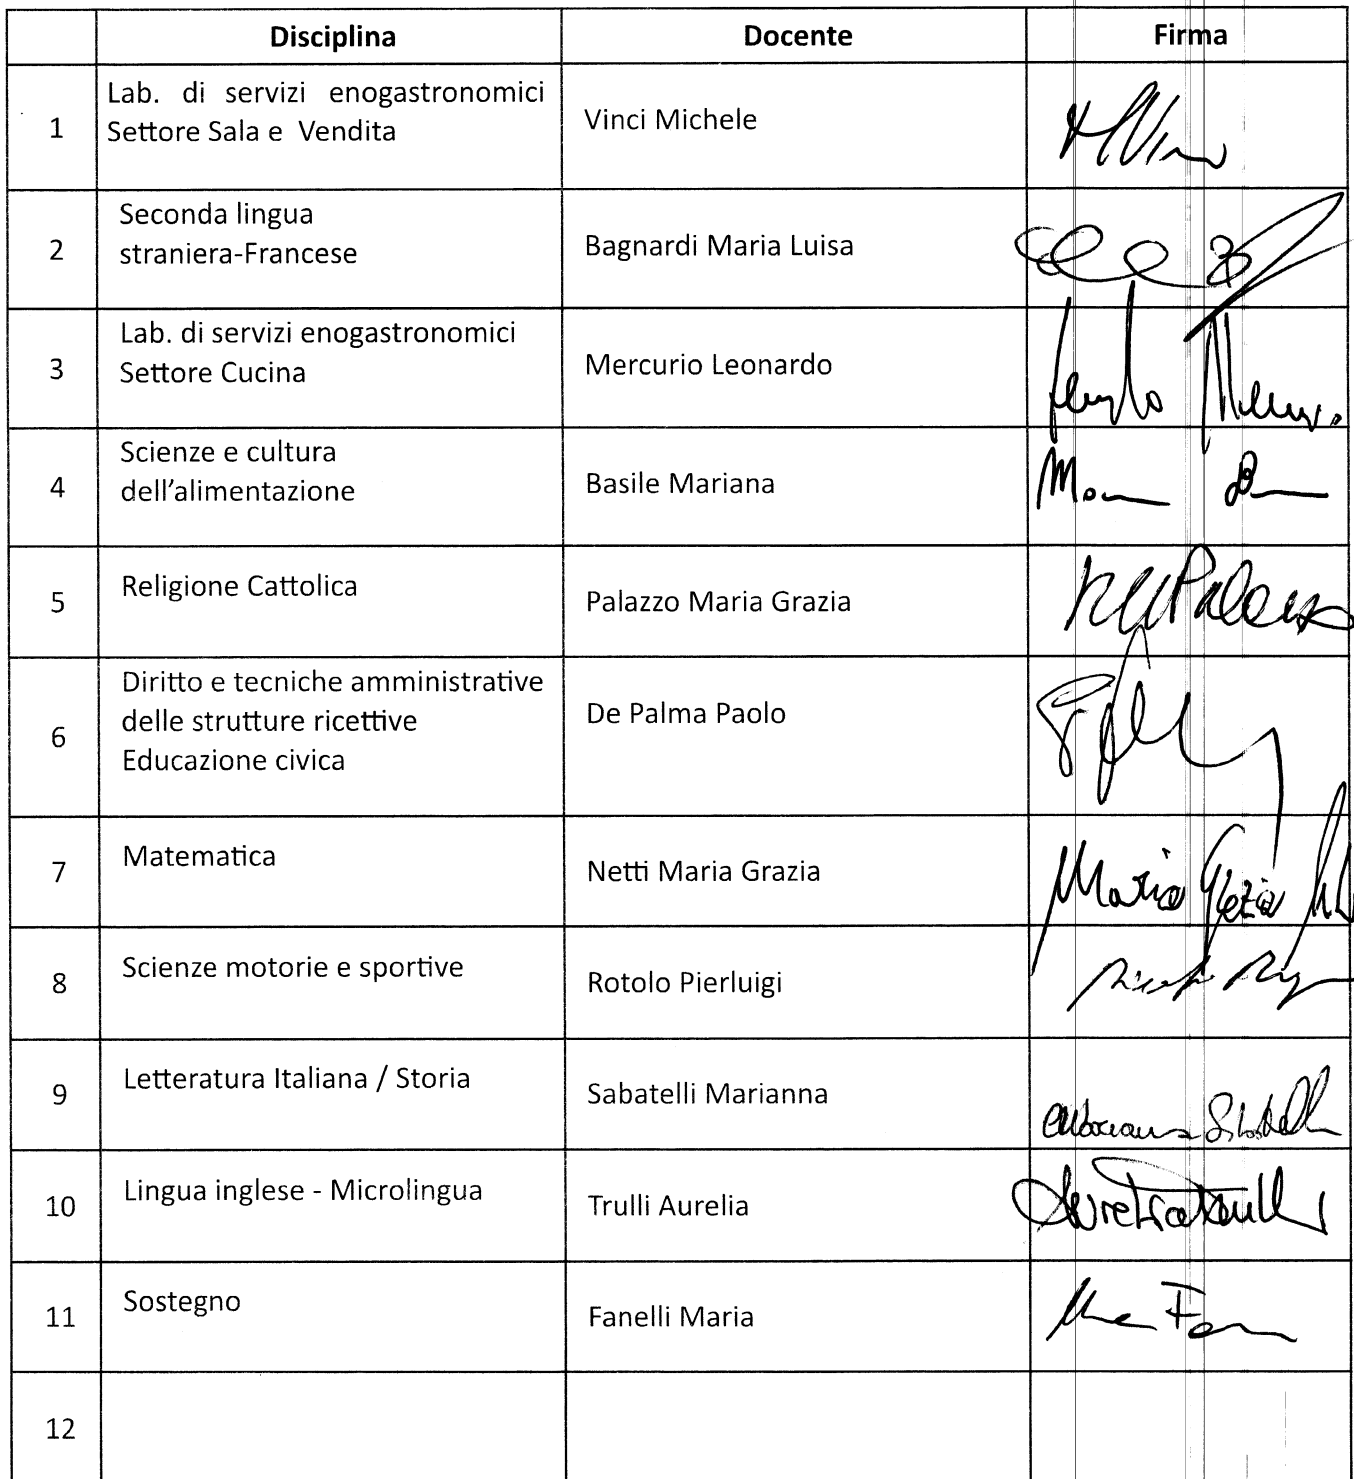 Disciplina Docente Firma
1 Lab. di servizi enogastronomici
Settore Sala e Vendita Vinci Michele
2 Seconda lingua
straniera-Francese Bagnardi Maria Luisa
3 Lab. di servizi enogastronomici
Settore Cucina Mercurio Leonardo
4 Scienze e cultura
dell'alimentazione Basile Mariana
5 Religione Cattolica Palazzo Maria Grazia
6 Diritto e tecniche amministrative
delle strutture ricettive
Educazione civica De Palma Paolo
7 Matematica Netti Maria Grazia Maria Grazia
8 Scienze motorie e sportive Rotolo Pierluigi
9 Letteratura Italiana / Storia Sabatelli Marianna
10 Lingua inglese - Microlingua Trulli Aurelia Aurelia Trulli
11 Sostegno Fanelli Maria
12